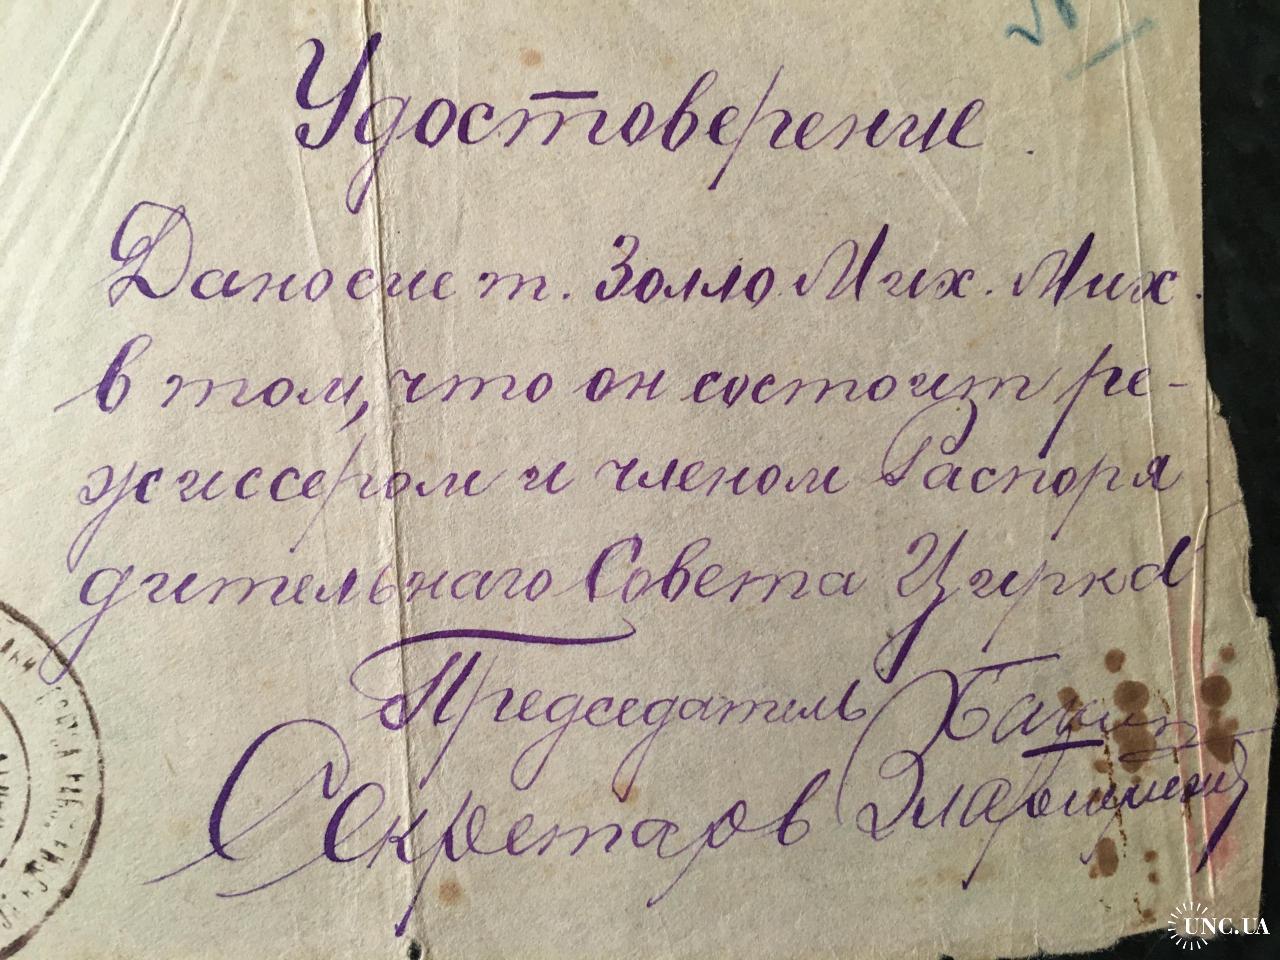 Удостоверение.
Дано сие т. Золло Мих. Мих.
в том, что он состоит ре-
жиссером и членом Распоря
дительнаго Совета Цирка
Председатель
Секретарь
UNC.UA